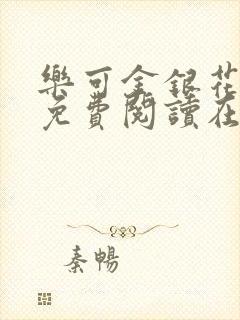 樂可金銀花
免費閱讀在
秦暢